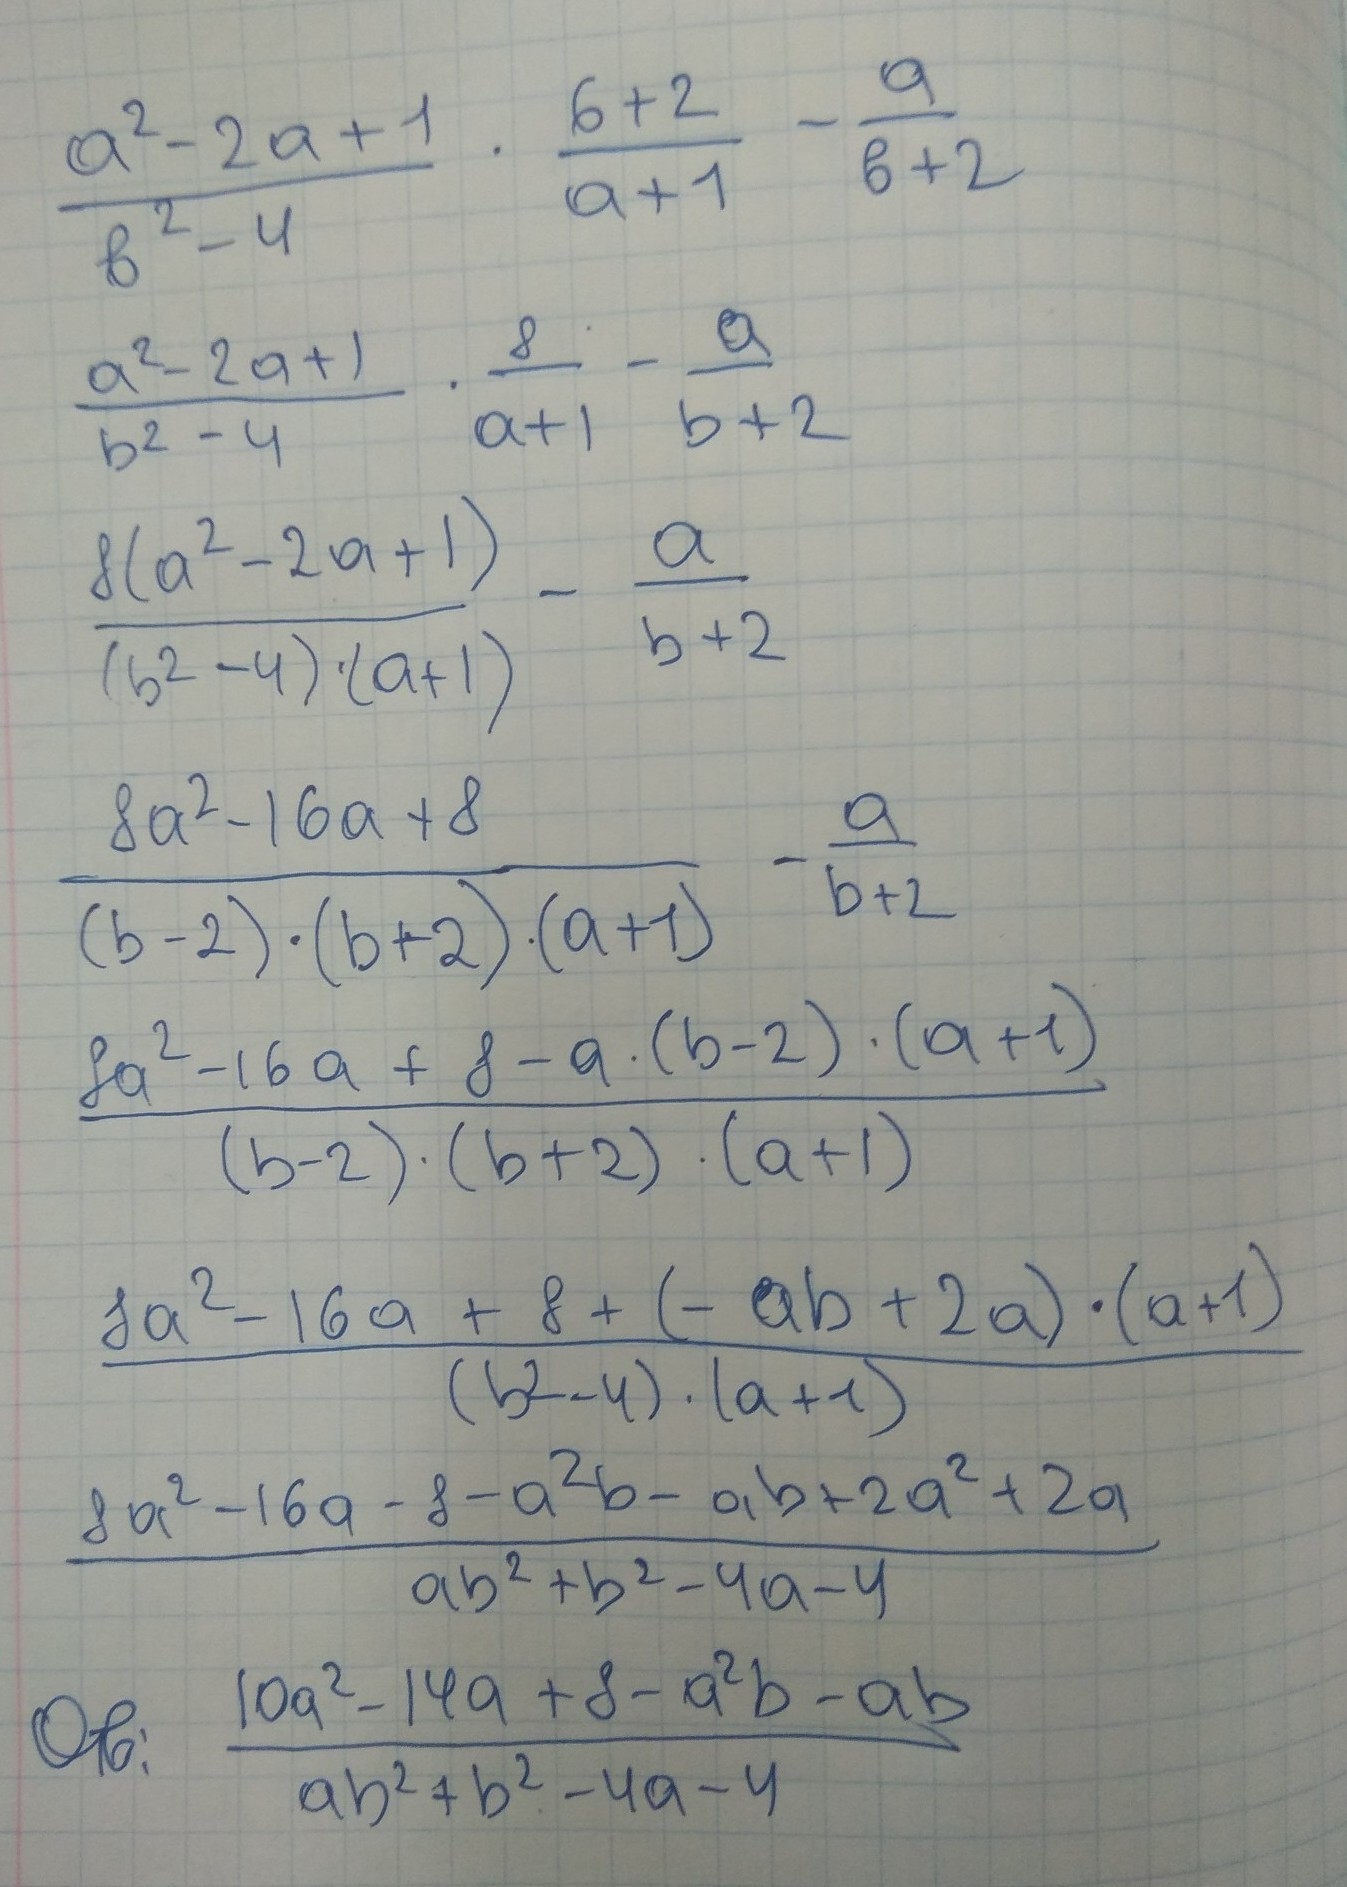 (a²-2a+1)/(в²-4) · (6+2)/(a+1) - a/(в+2)
(a²-2a+1)/(b²-4) · 8/(a+1) - a/(b+2)
8(a²-2a+1)/((b²-4)·(a+1)) - a/(b+2)
(8a²-16a+8)/((b-2)·(b+2)·(a+1)) - a/(b+2)
(8a²-16a+8-a·(b-2)·(a+1))/((b-2)·(b+2)·(a+1))
(8a²-16a+8+(-ab+2a)·(a+1))/((b²-4)·(a+1))
(8a²-16a-8-a²b-ab+2a²+2a)/(ab²+b²-4a-4)
Отв: (10a²-14a+8-a²b-ab)/(ab²+b²-4a-4)